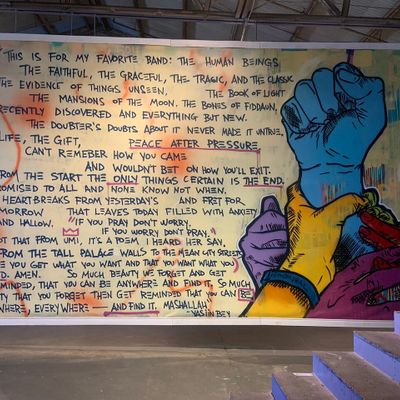 THIS IS FOR MY FAVORITE BAND: THE HUMAN BEINGS,
THE FAITHFUL, THE GRACEFUL, THE TRAGIC, AND THE CLASSIC
THE EVIDENCE OF THINGS UNSEEN, THE BOOK OF LIGHT
THE MANSIONS OF THE MOON. THE BONES OF FIDDAUN,
RECENTLY DISCOVERED AND EVERYTHING BUT NEW.
THE DOUBTER'S DOUBTS ABOUT IT NEVER MADE IT UNTRUE.
LIFE, THE GIFT, PEACE AFTER PRESSURE
CAN'T REMEBER HOW YOU CAME
AND WOULDN'T BET ON HOW YOU'LL EXIT.
FROM THE START THE ONLY THINGS CERTAIN IS THE END.
PROMISED TO ALL AND NONE KNOW NOT WHEN.
HEARTBREAKS FROM YESTERDAY'S AND FRET FOR
TOMORROW THAT LEAVES TODAY FILLED WITH ANXIETY
AND HALLOW. "IF YOU PRAY DON'T WORRY.
IF YOU WORRY DON'T PRAY."
GOT THAT FROM UMI, IT'S A POEM I HEARD HER SAY.
FROM THE TALL PALACE WALLS TO THE MEAN CITY STREETS
YOU GET WHAT YOU WANT AND THAT YOU WANT WHAT YOU
AMEN. SO MUCH BEAUTY WE FORGET AND GET
REMINDED, THAT YOU CAN BE ANYWHERE AND FIND IT, SO MUCH
THAT YOU FORGET THEN GET REMINDED THAT YOU CAN BE
EVERYWHERE — AND FIND IT. MASHALLAH
-YASIIN BEY